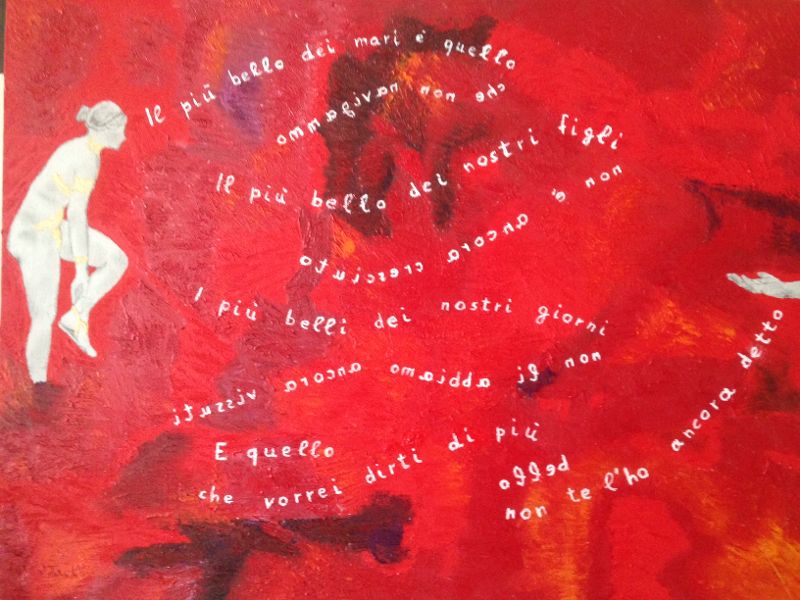 Il più bello dei mari è quello
che non navigammo
Il più bello dei nostri figli
non è ancora cresciuto
I più belli dei nostri giorni
non li abbiamo ancora vissuti
E quello
che vorrei dirti di più
bello
non te l'ho ancora detto